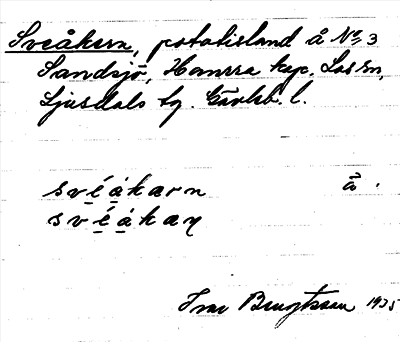 Sveåkern, potatisland å No 3
Sandsjö, Hamra kap. Los sn,
Ljusdals tg. Gävleb. l.
svéåkaṛn ä̊.
svéåkaṇ
Ivar Bengtsson 1935